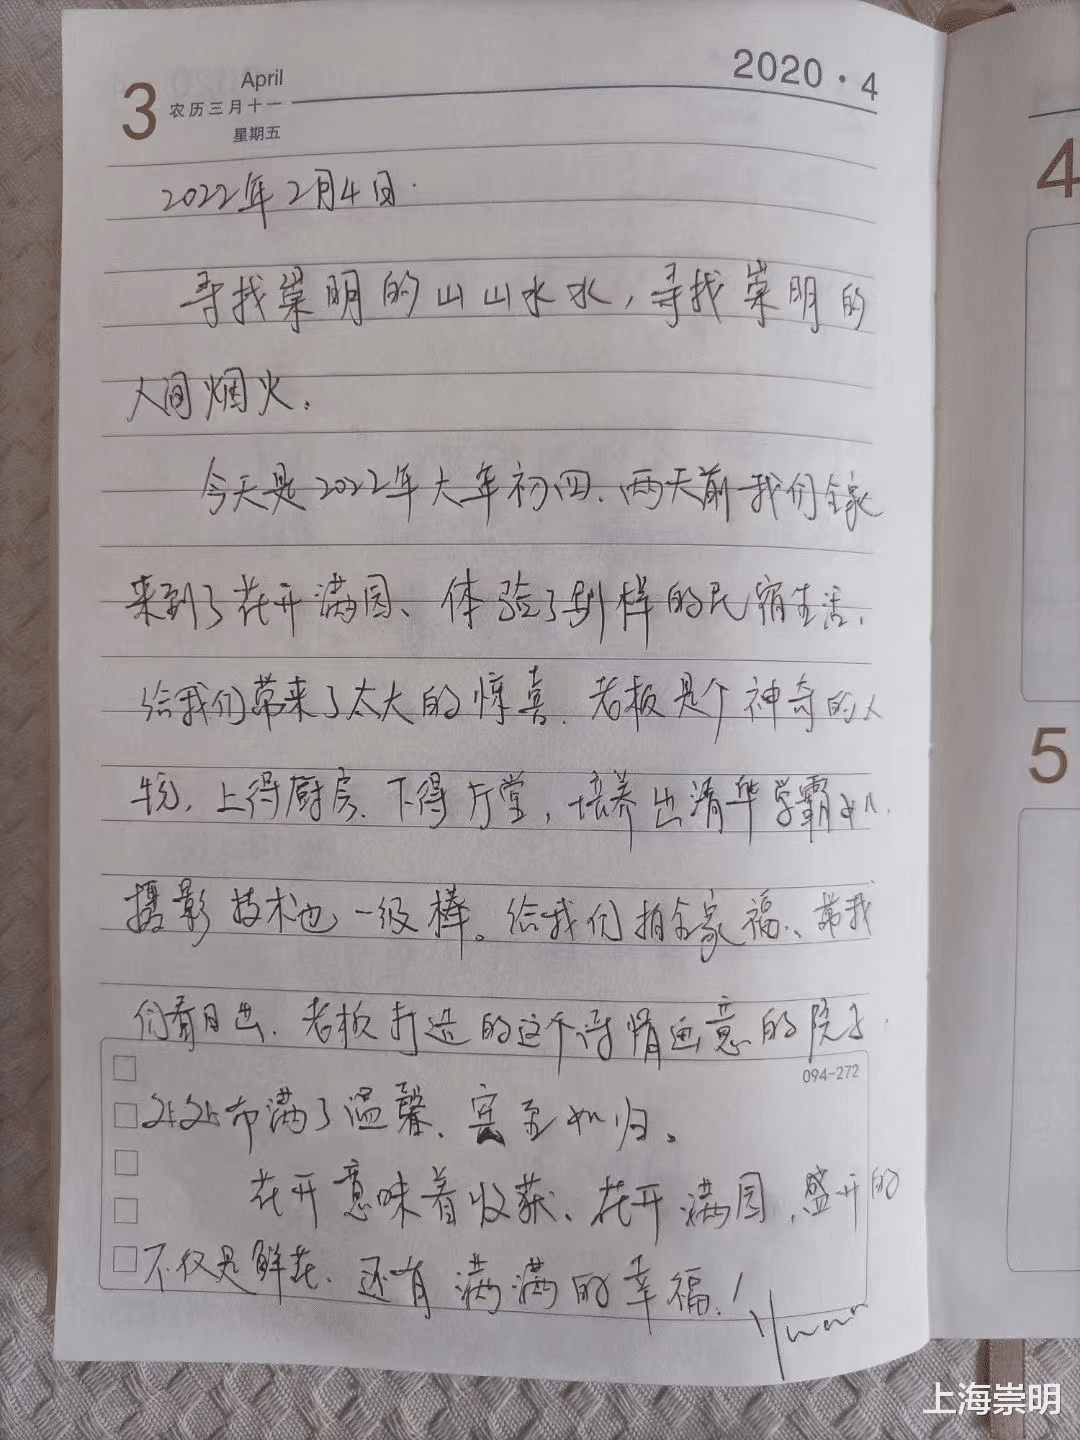 3
April
农历三月十一
星期五
2020·4
2022年2月4日.
寻找崇明的山山水水,寻找崇明的
人间烟火。
今天是2022年大年初四、两天前我们全家
来到了花开满园、体验了别样的民宿生活、
给我们带来了太大的惊喜、老板是个神奇的人
物,上得厨房、下得厅堂,培养出清华学霸女儿、
摄影技术也一级棒。给我们拍全家福、带我
们看日出、老板打造的这个诗情画意的院子、
处处布满了温馨、宾至如归。
花开意味着收获、花开满园、盛开的
不仅是鲜花、还有满满的幸福!
Yuan
094-272
4
5
上海崇明